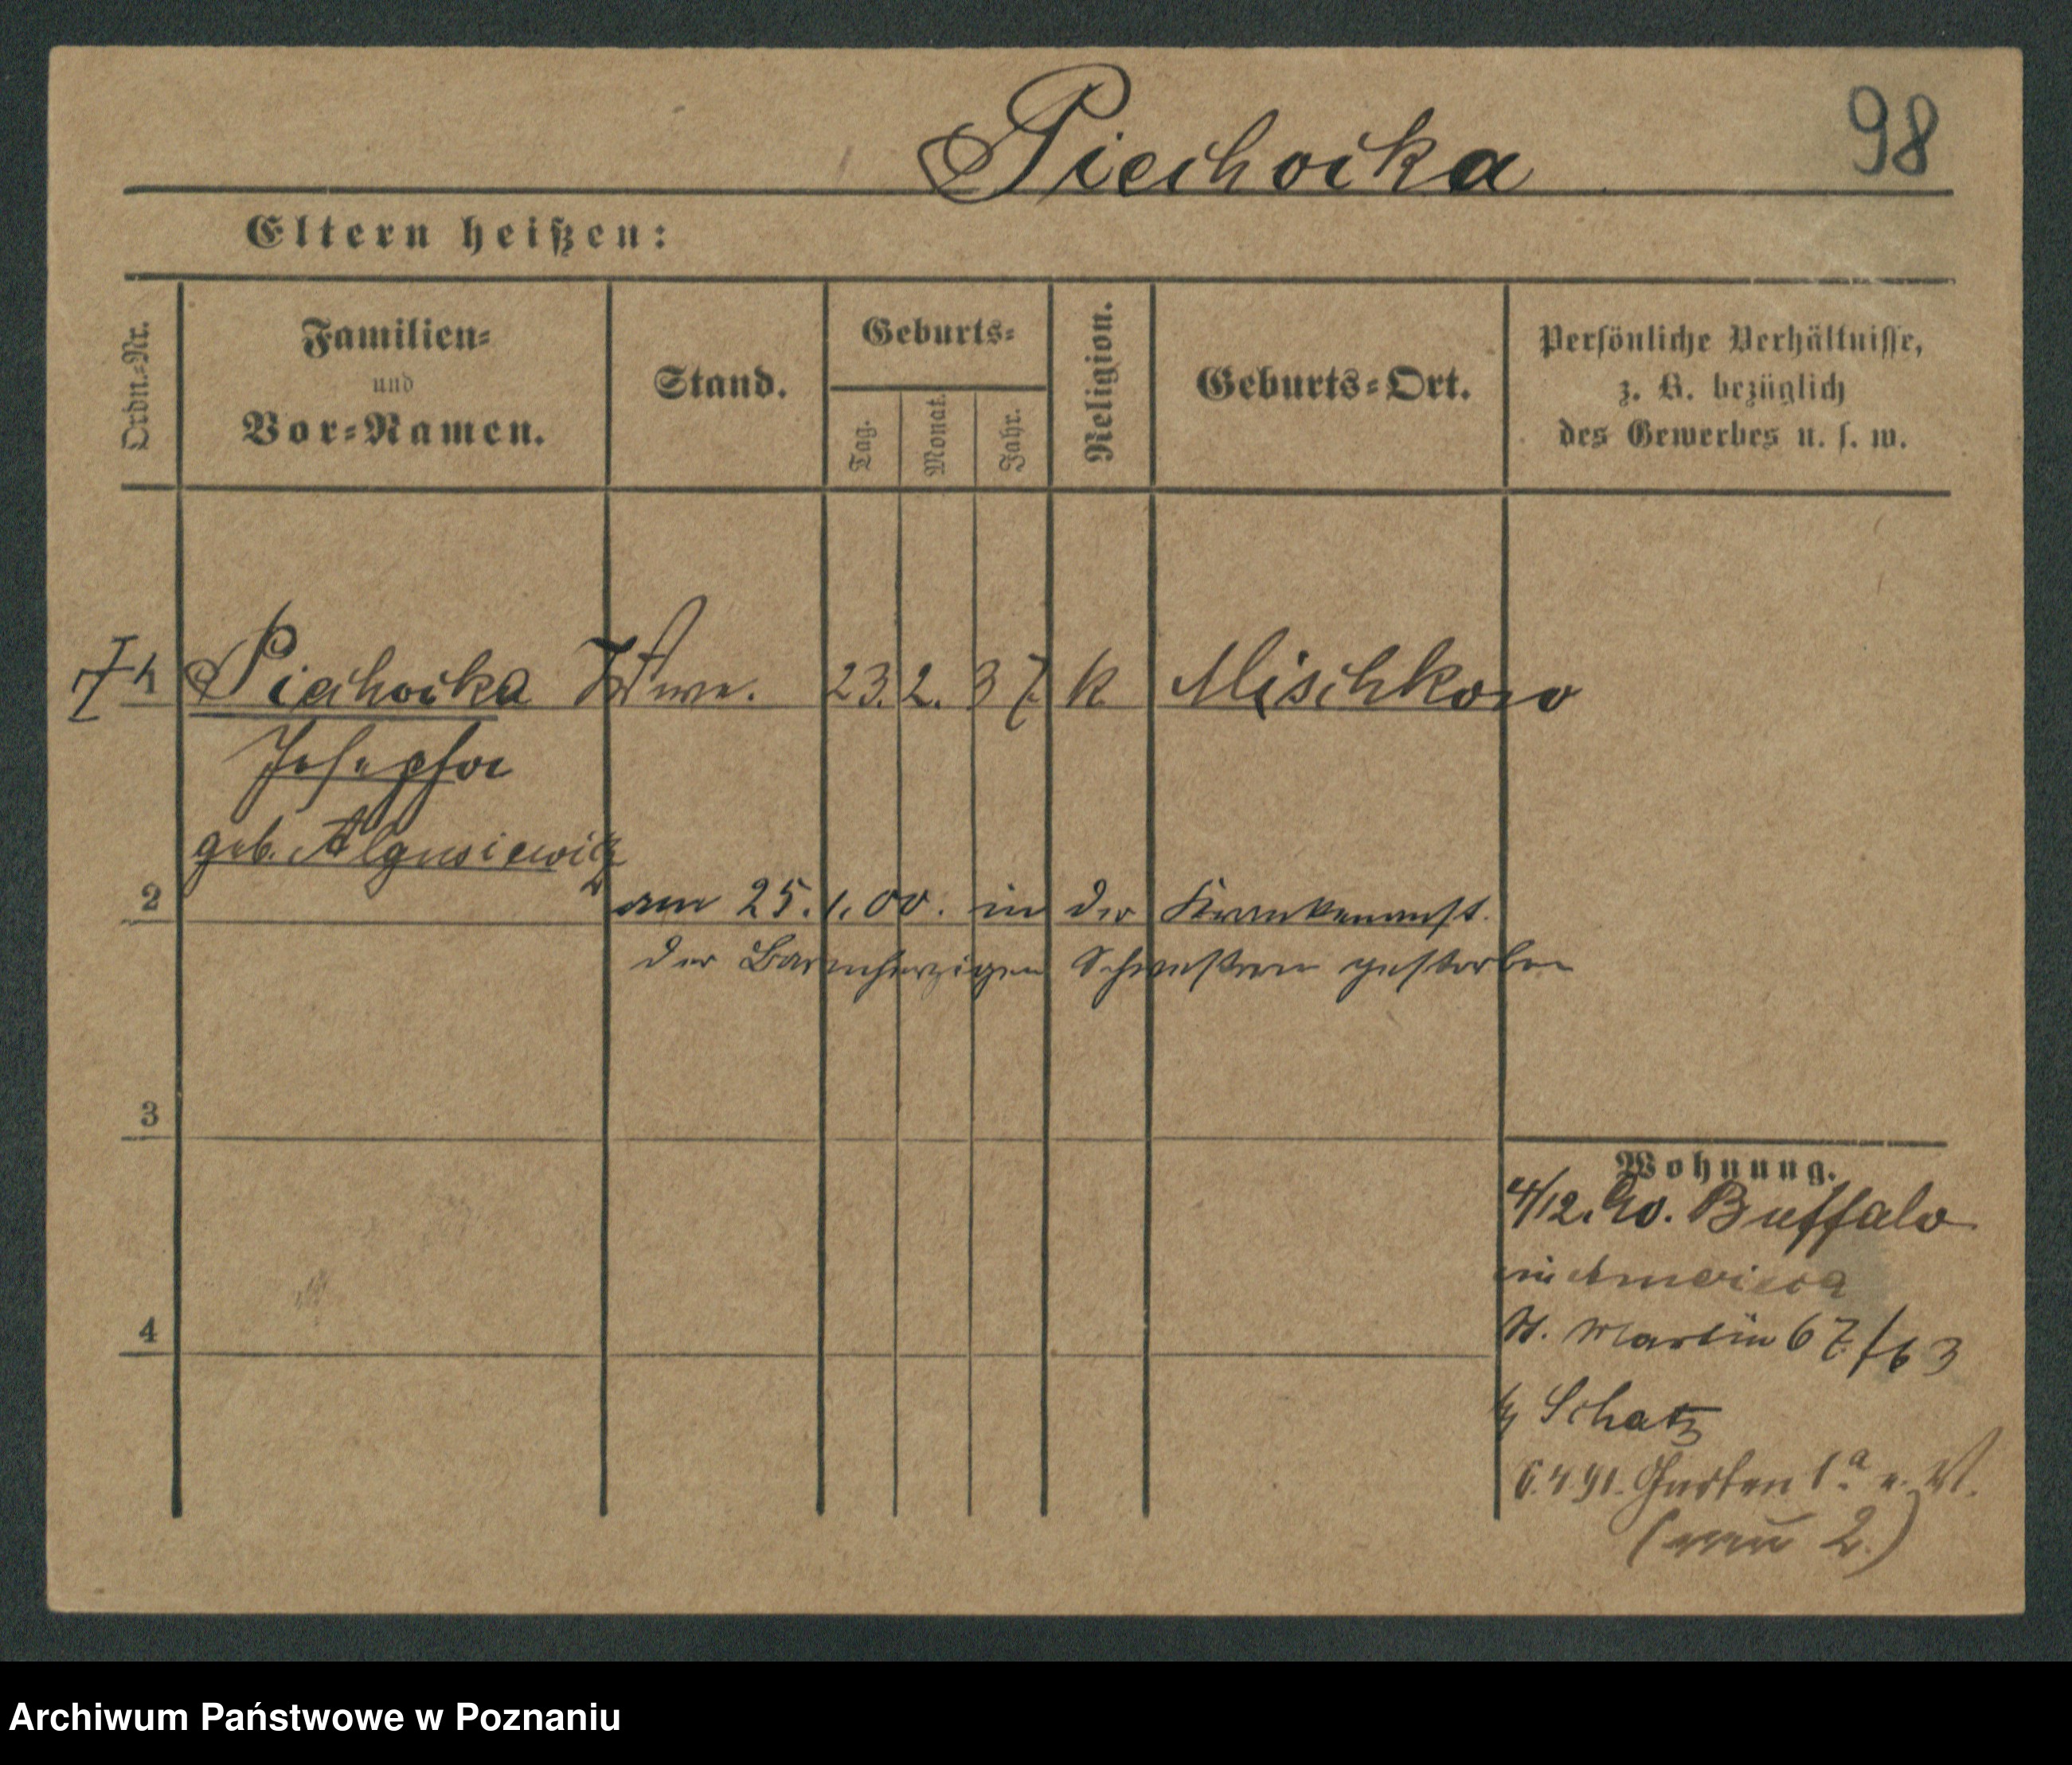 98
Piechocka
Eltern heißen:
Ordn.-Nr.
Familien-
und
Vor-Namen.
Stand.
Geburts-
Tag.
Monat.
Jahr.
Religion.
Geburts-Ort.
Persönliche Verhältnisse,
z. B. bezüglich
des Gewerbes u. s. w.
1 Piechocka Wwe. 23. 2. 37 K Mischkowo
Josepha
geb. Algusiewicz
2
am 25. 1. 00. in der Krankenanst.
der Barmherzigen Schwestern gestorben
3
Wohnung.
4/12. 90. Buffalo
in America
St. Martin 67/63
4
b/ Schatz
6.4.91. Garten 1a
(neu 2.)
Archiwum Państwowe w Poznaniu